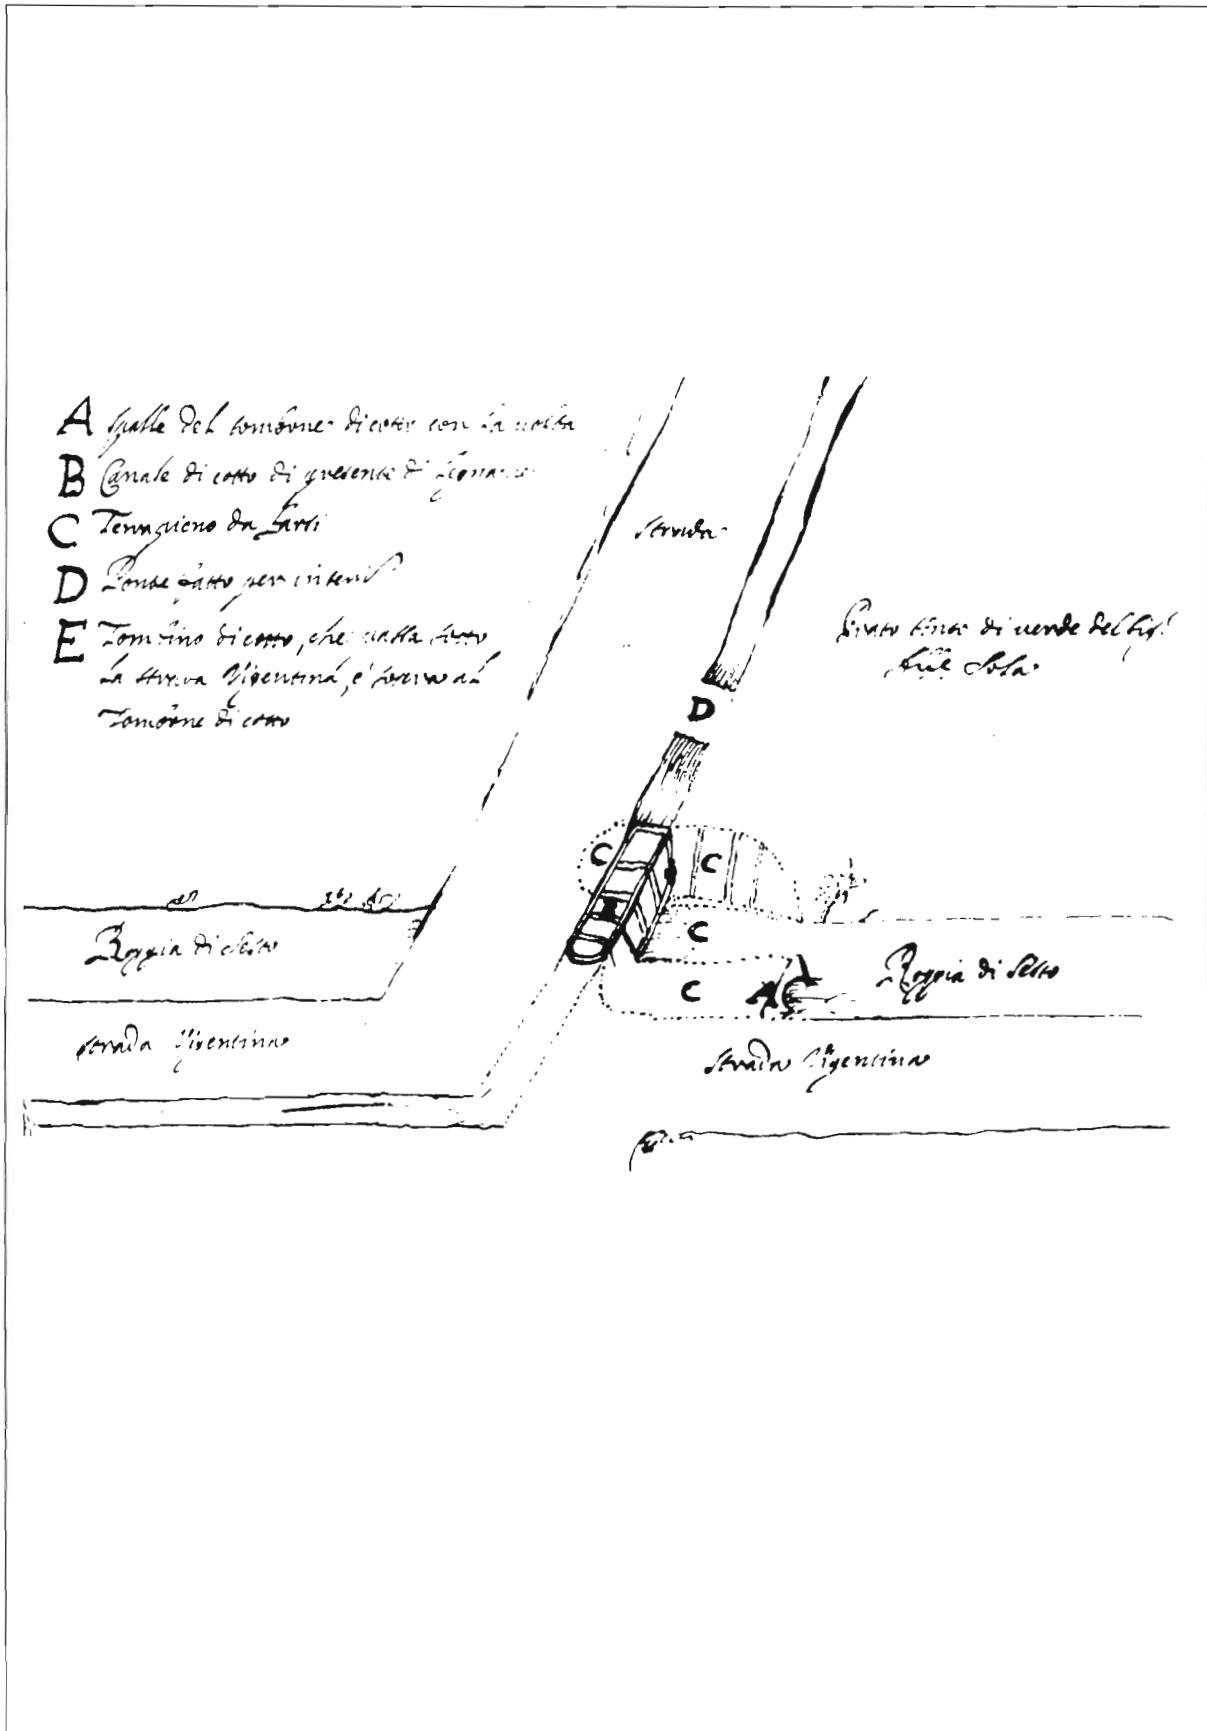 A Spalle del tombone di cotto con la uolta
B Canale di cotto di presente di legname
C Terrapieno da farsi
D Ponte fatto per
E Tombino di cotto, che passa sotto
la strada Vigentina, e serve al
Tombone di cotto
Strada
Prato tinto di verde del Sigr
Sola
D
C
C
C
C
Roggia di Sesto
Roggia di Sesto
Strada Vigentina
Strada Vigentina